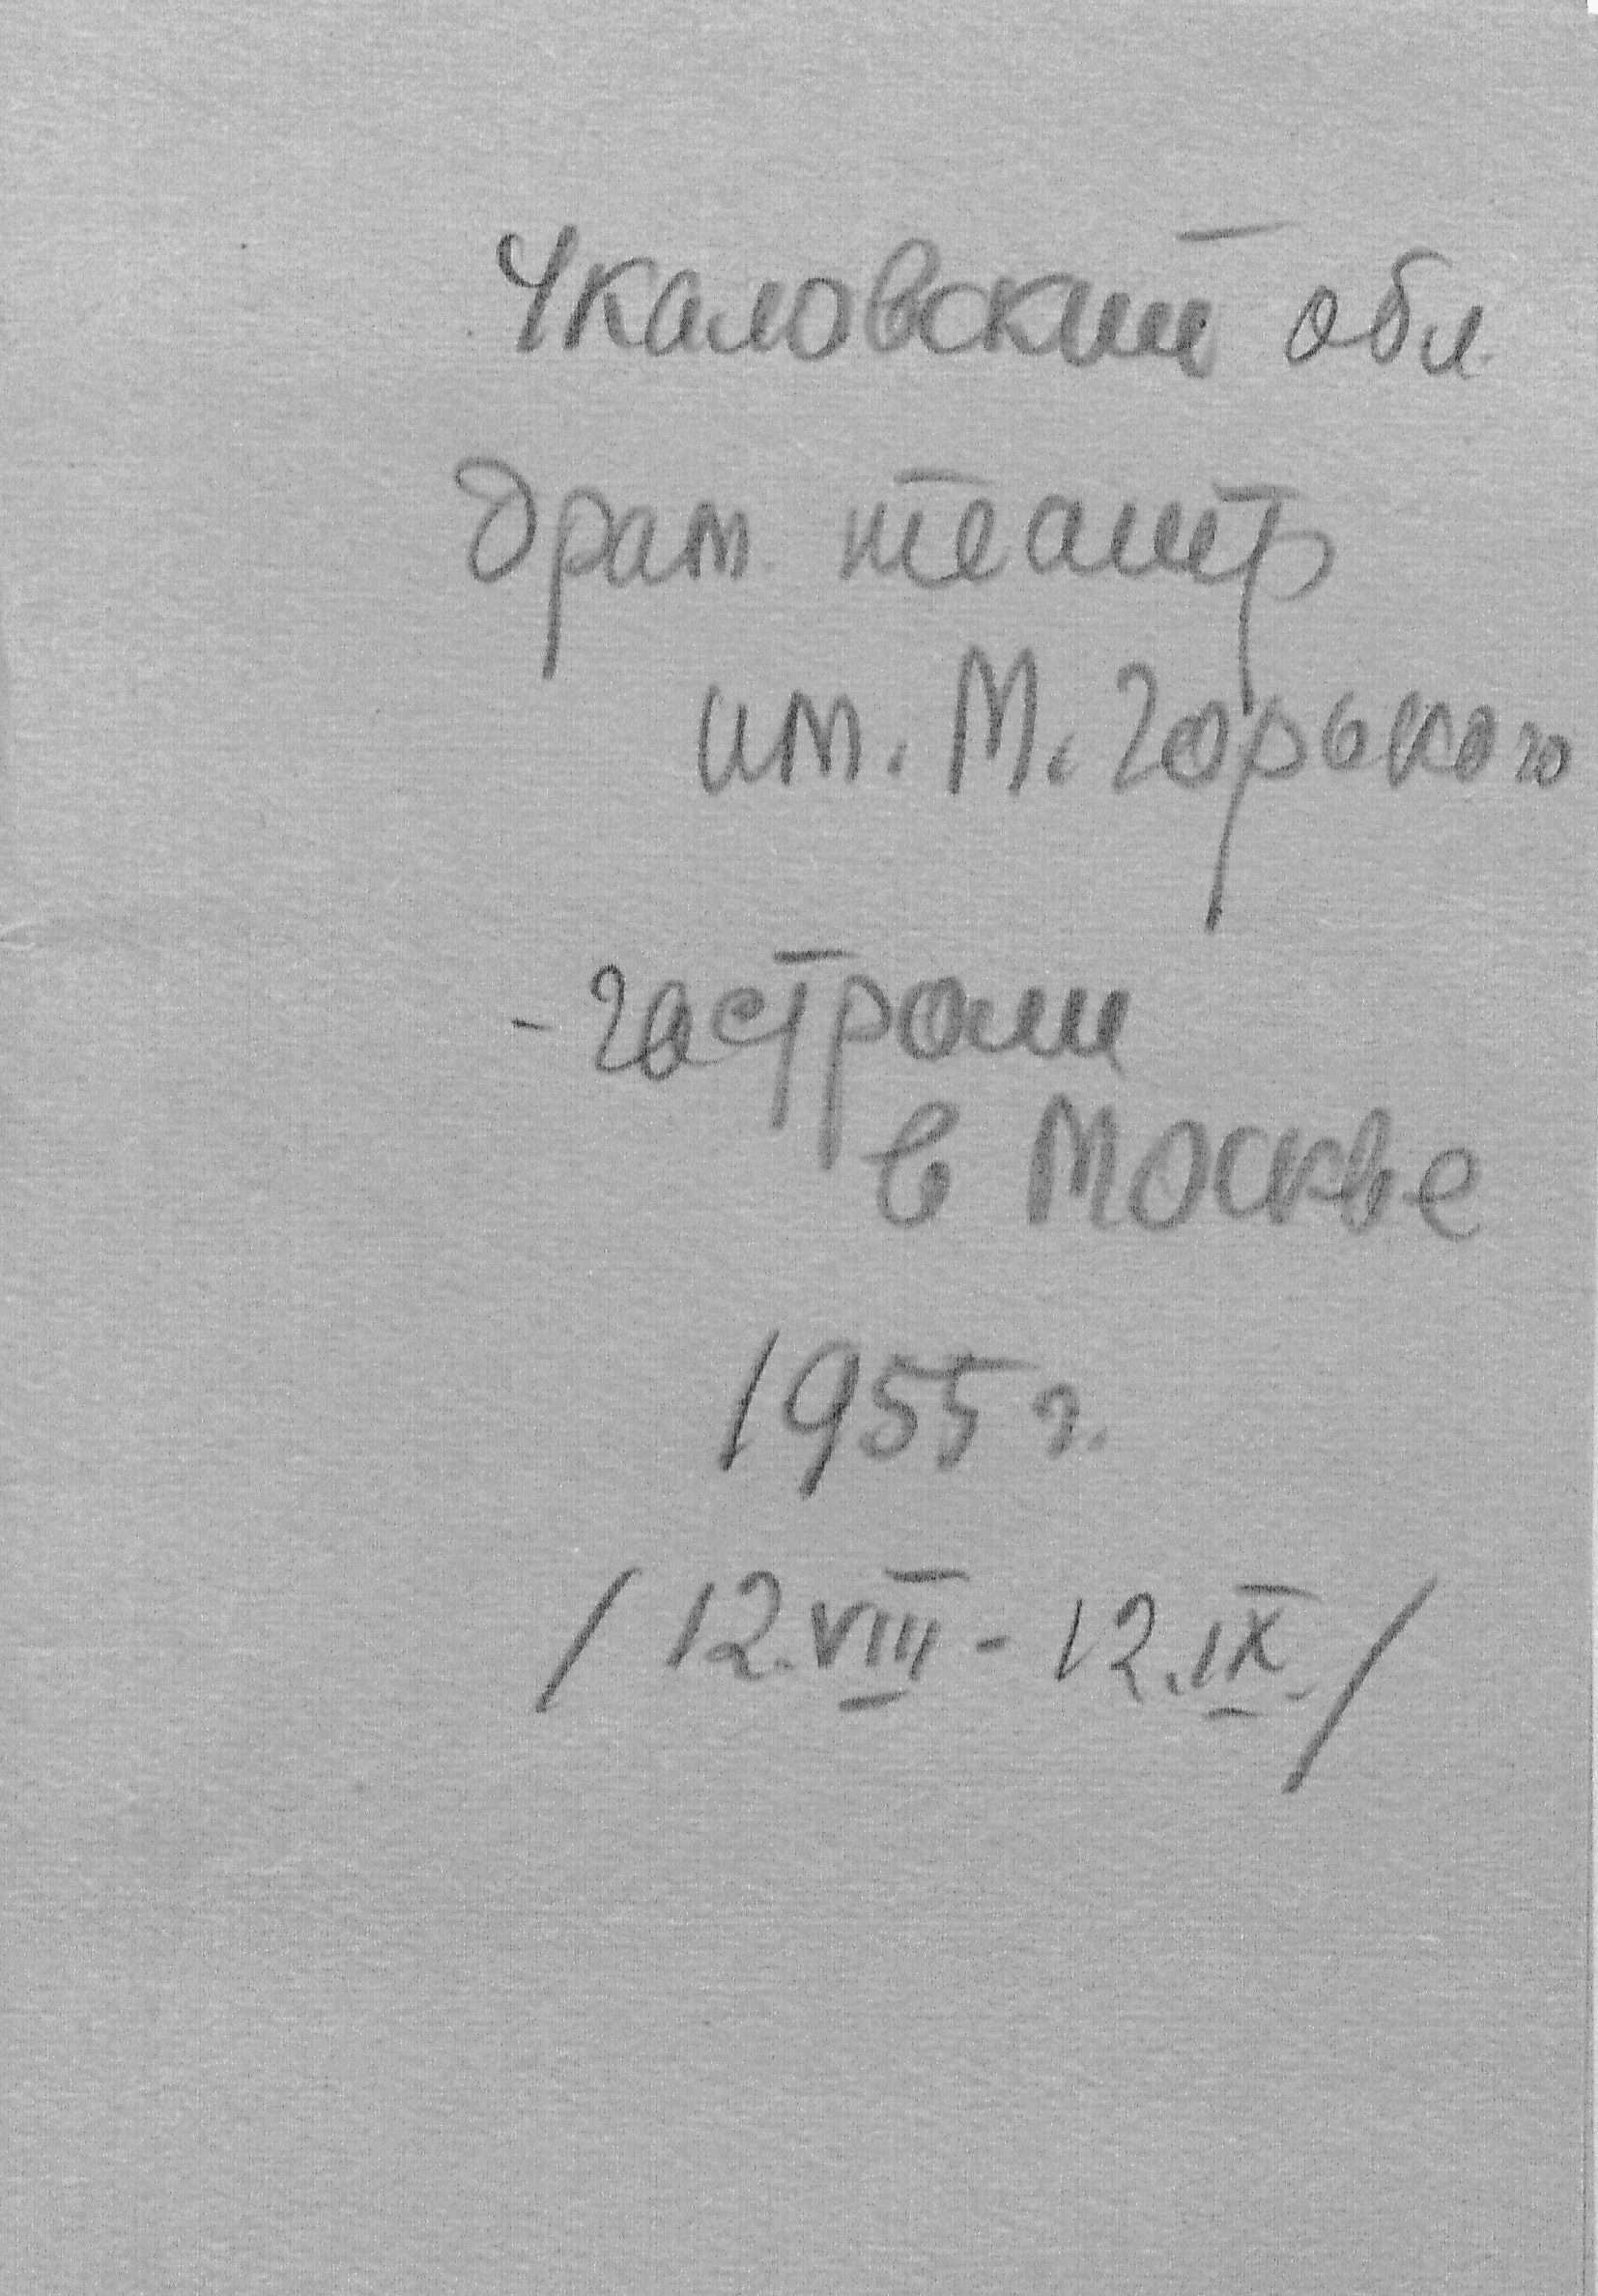 Чкаловский обл.
драм. театр
им. М. Горького
- гастроли
в Москве
1955 г.
/ 12.VIII - 12.IX. /